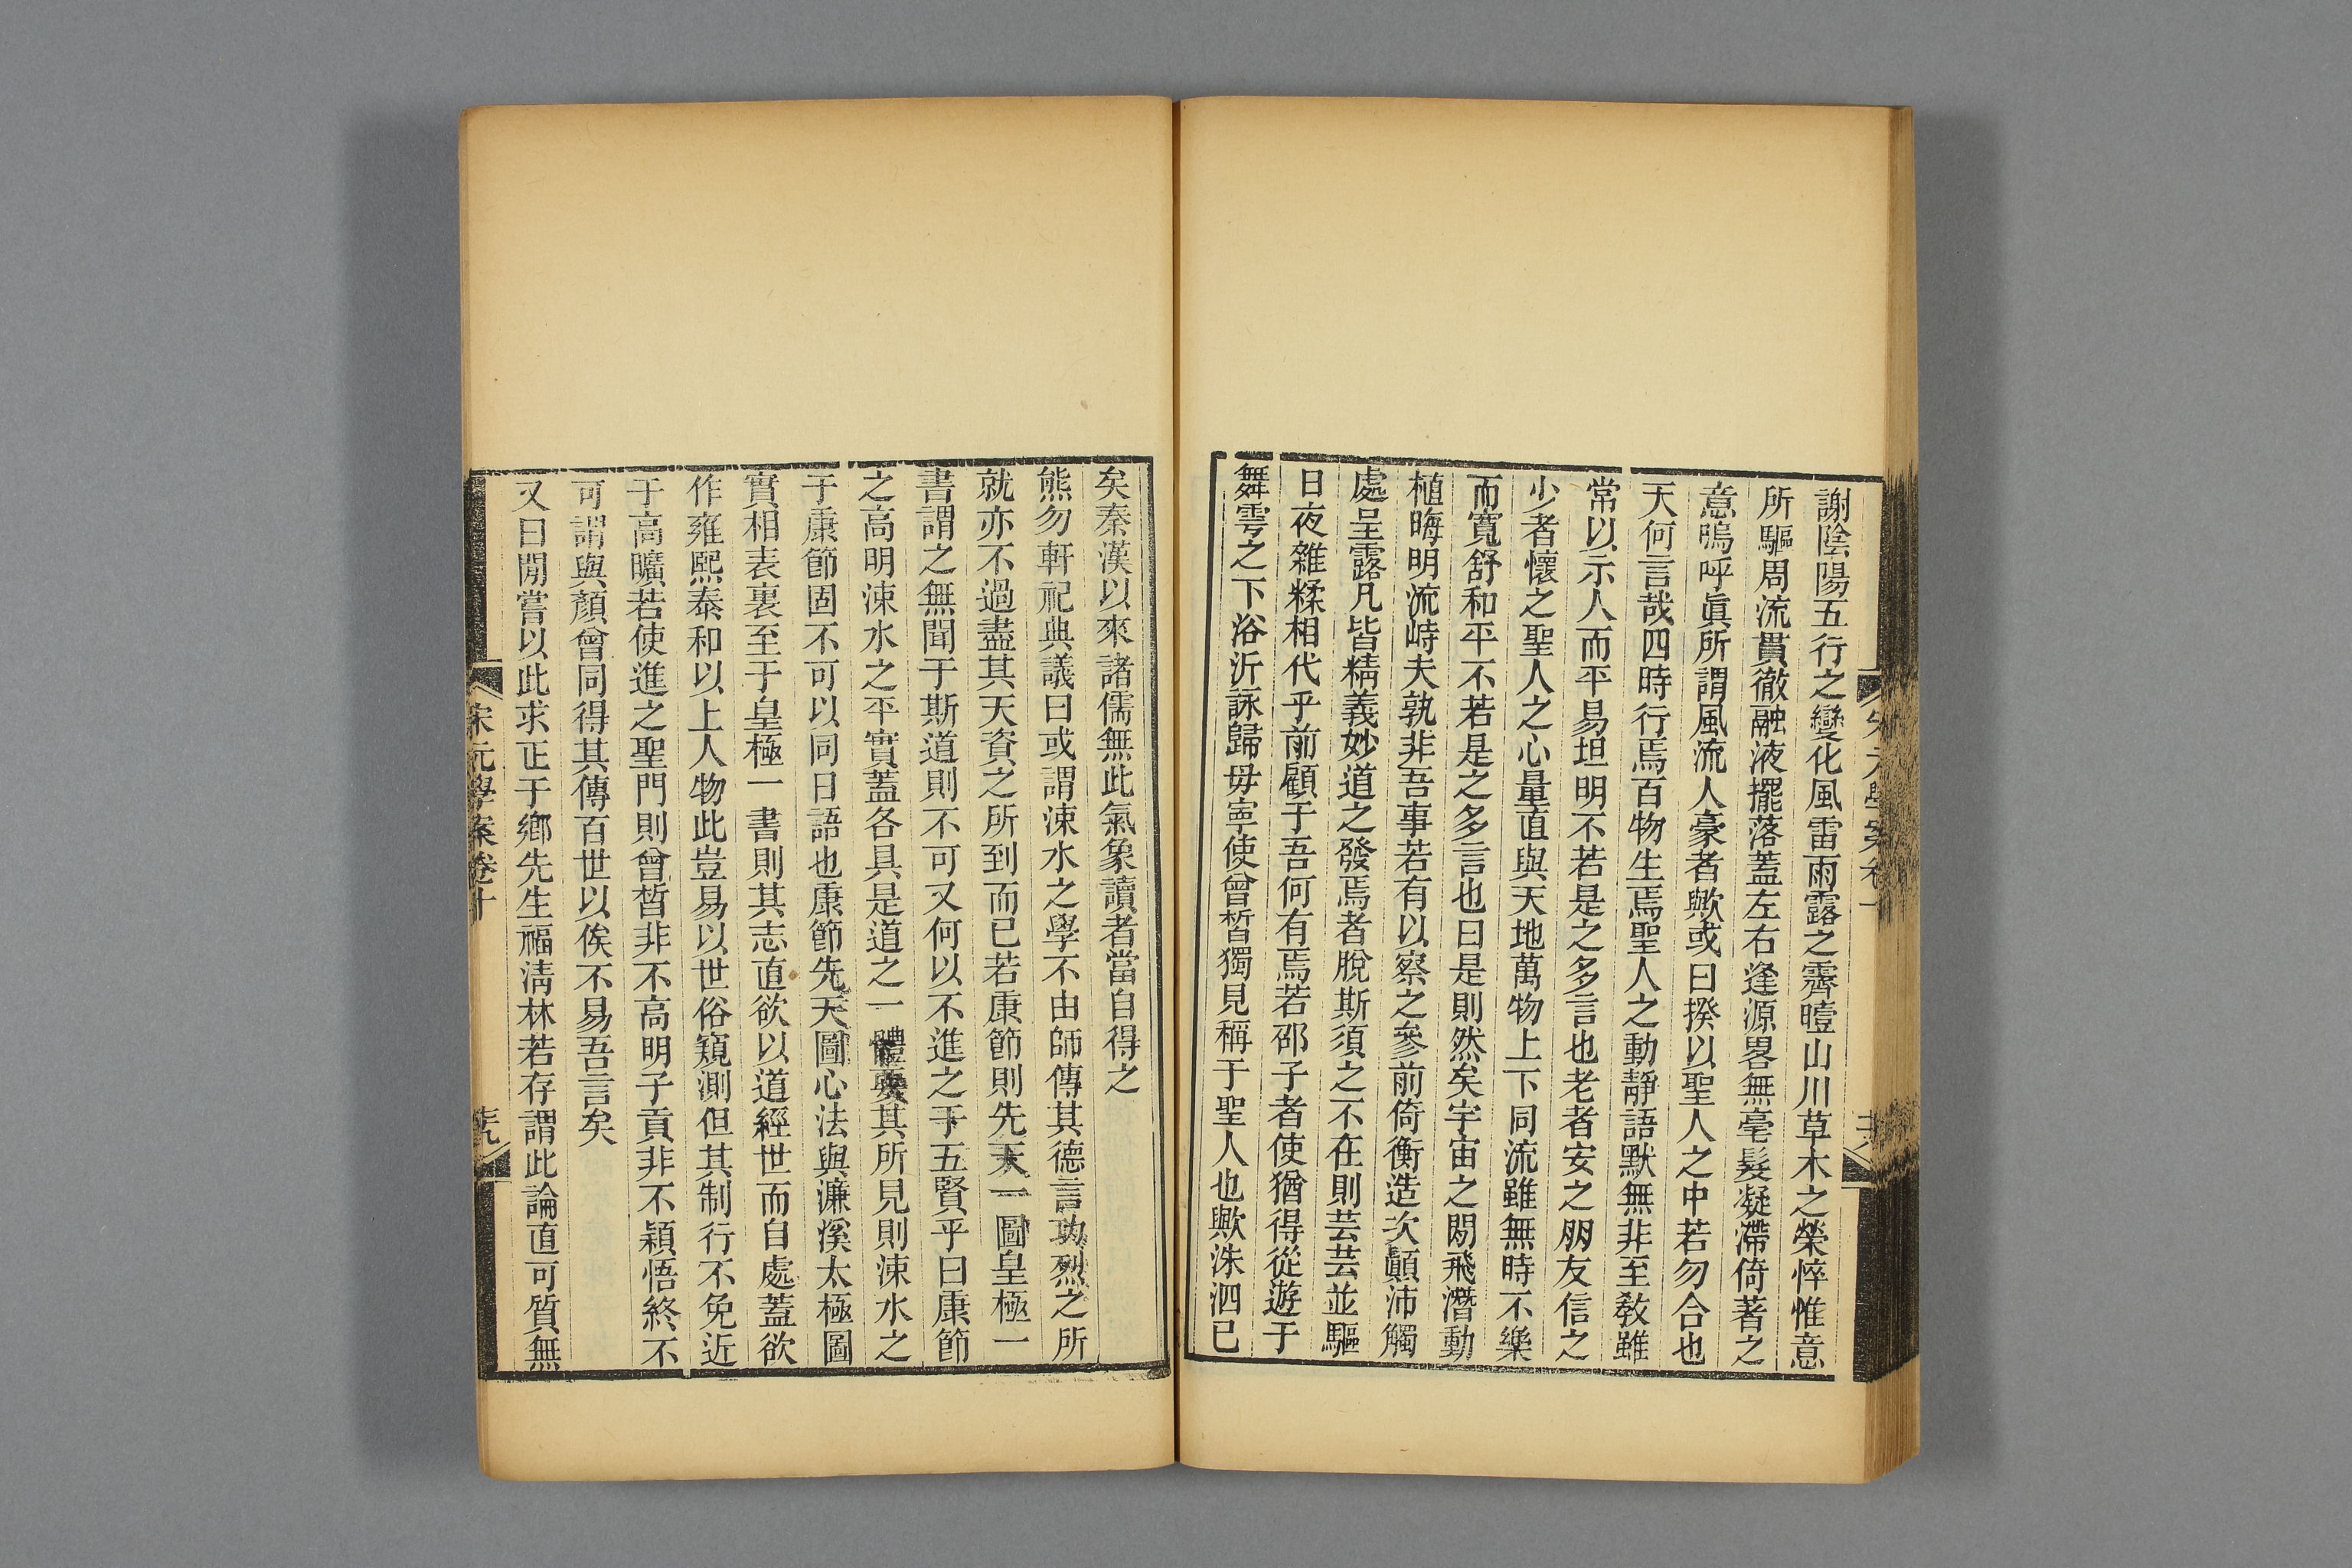 謝陰陽五行之變化風雷雨露之霽曀山川草木之榮悴惟意
所驅周流貫徹融液擺落蓋左右逢源畧無毫髮凝滯倚著之
意嗚呼眞所謂風流人豪者歟或曰揆以聖人之中若勿合也
天何言哉四時行焉百物生焉聖人之動靜語默無非至敎雖
常以示人而平易坦明不若是之多言也老者安之朋友信之
少者懷之聖人之心量直與天地萬物上下同流雖無時不樂
而寬舒和平不若是之多言也曰是則然矣宇宙之閎飛潛動
植晦明流峙夫孰非吾事若有以察之參前倚衡造次顚沛觸
處呈露凡皆精義妙道之發焉者脫斯須之不在則芸芸並驅
日夜雜糅相代乎前顧于吾何有焉若邵子者使猶得從遊于
舞雩之下浴沂詠歸毋寧使曾晳獨見稱于聖人也歟洙泗已
矣秦漢以來諸儒無此氣象讀者當自得之
熊勿軒祀典議曰或謂涑水之學不由師傳其德言功烈之所
就亦不過盡其天資之所到而已若康節則先天一圖皇極一
書謂之無聞于斯道則不可又何以不進之于五賢乎曰康節
之高明涑水之平實蓋各具是道之一體要其所見則涑水之
于康節固不可以同日語也康節先天圖心法與濂溪太極圖
實相表裏至于皇極一書則其志直欲以道經世而自處蓋欲
作雍熙泰和以上人物此豈易以世俗窺測但其制行不免近
于高曠若使進之聖門則曾晳非不高明子貢非不穎悟終不
可謂與顏曾同得其傳百世以俟不易吾言矣
又曰閒嘗以此求正于鄉先生福淸林若存謂此論直可質無
宋元學案卷十